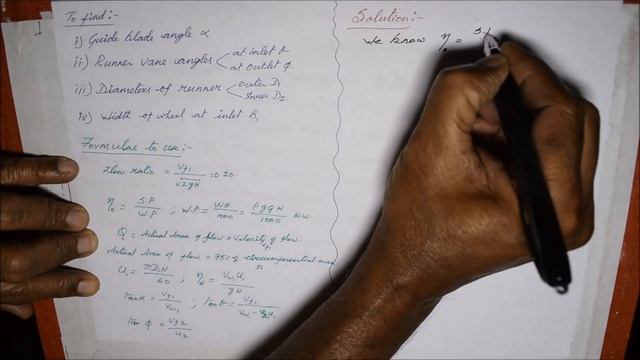 To find:-
i) Guide blade angle α
ii) Runner vane angles at inlet θ
at outlet ϕ.
iii) Diameters of runner outer D1
Inner D2
iv) Width of wheel at inlet B1
Formulae to use:-
Flow ratio = Vf1/√2gH = 0.20.
η0 = S.P/W.P ; W.P = WH/1000 = ρgQH/1000 kW.
Q = Actual Area of flow × Velocity of flow.
Actual Area of flow = 95% of circumferential area
u1 = πD1N/60 ; ηH = Vw1u1/gH
tanα = Vf1/Vw1 ; tanθ = Vf1/Vw1-u1
tan ϕ = Vf2/u2
Solution:-
We know η0 = S.